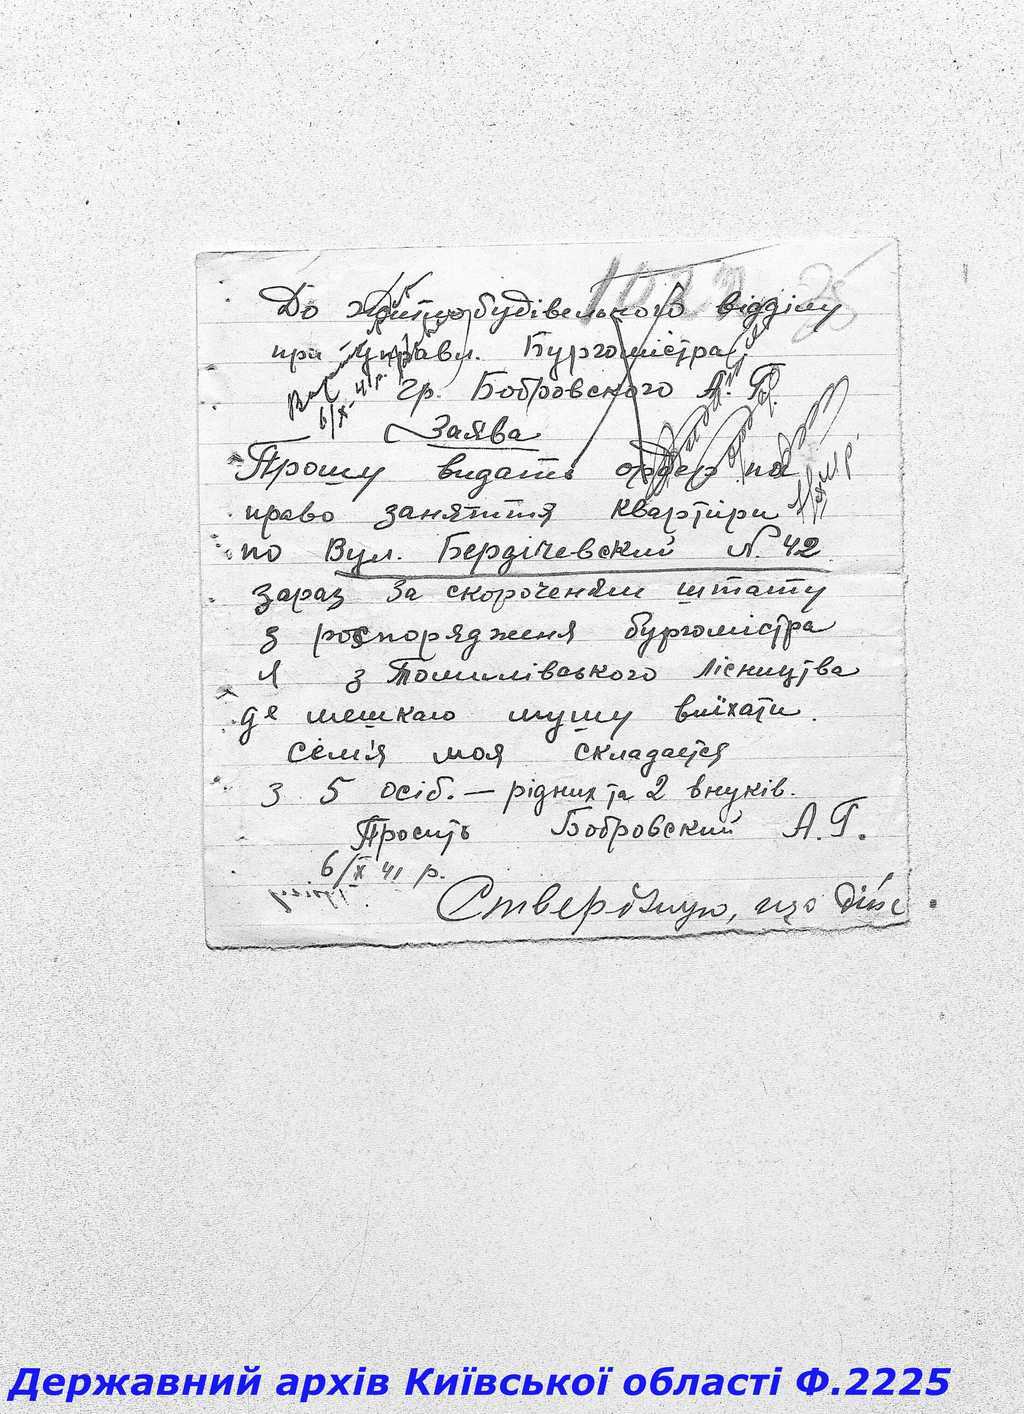 До житлобудівельного відділу
при Управл. Бургомістра
гр. Бобровского А. Г.
6/X-41 р.
Заява
Прошу видать ордер на
право заняття квартири
по Вул. Бердічевский N. 42
зараз за скороченям штату
з роспорядженя бургомістра
я з Томилівського лісництва
де мешкаю мушу виїхати.
семія моя складается
з 5 осіб. — рідних та 2 внуків.
Просить Бобровский А. Г.
6/X 41 р.
Стверджую, що дійс
Державний архів Київської області Ф.2225